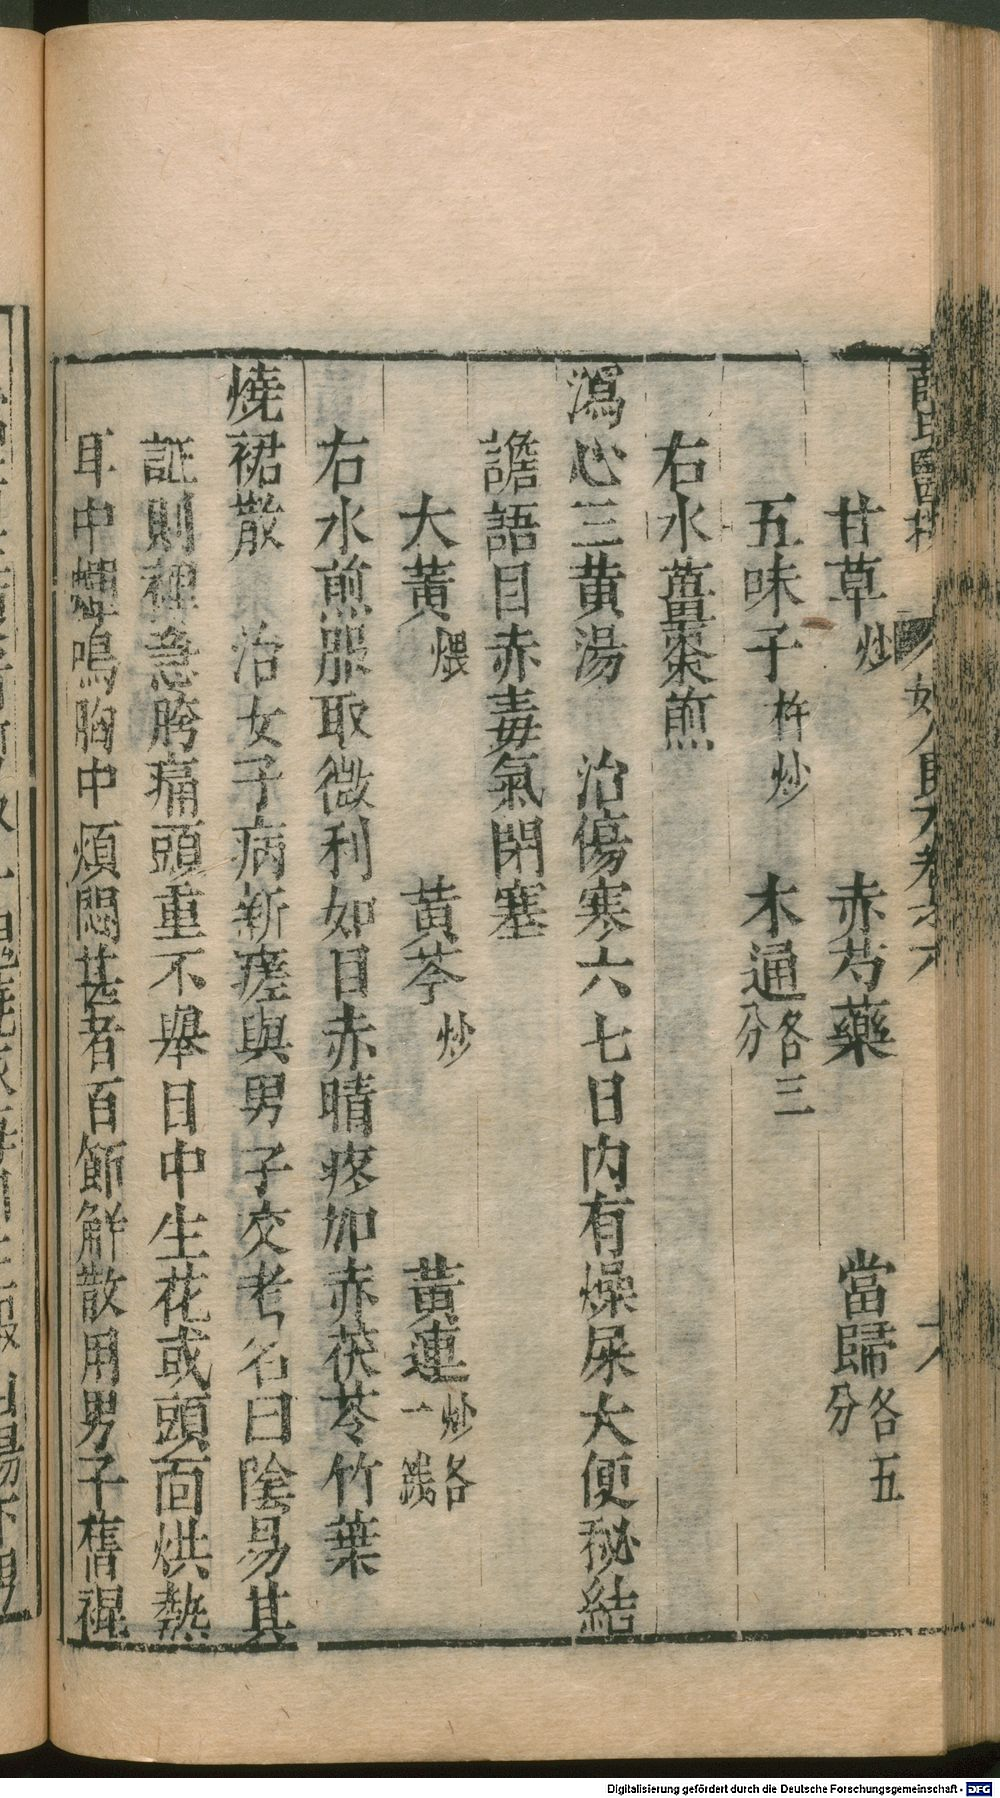 薛氏醫按 婦人良方卷六
甘草炒 赤芍藥 當歸各五分
五味子杵炒 木通各三分
右水薑棗煎
瀉心三黄湯 治傷寒六七日内有燥屎大便秘結
譫語目赤毒氣閉塞
大黄煨 黄芩炒 黄連炒各一錢
右水煎服取微利如目赤睛疼加赤茯苓竹葉
燒裙散 治女子病新瘥與男子交者名曰陰易其
証則裡急胯痛頭重不舉目中生花或頭面烘熱
耳中蟬鳴胸中煩悶甚者百節解散用男子舊褌
Digitalisierung gefördert durch die Deutsche Forschungsgemeinschaft - DFG